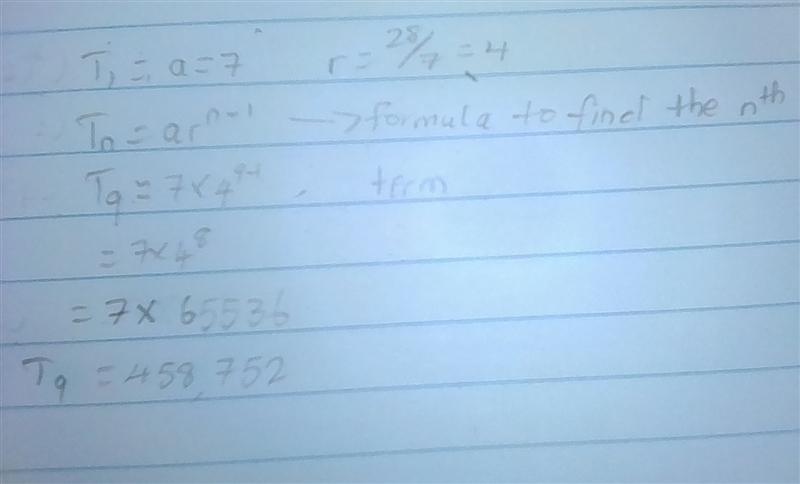 T₁ = a = 7 r = 28/7 = 4
Tₙ = arⁿ⁻¹ → formula to find the nᵗʰ
T₉ = 7 × 4⁹⁻¹ , term
= 7 × 4⁸
= 7 × 65536
T₉ = 458,752